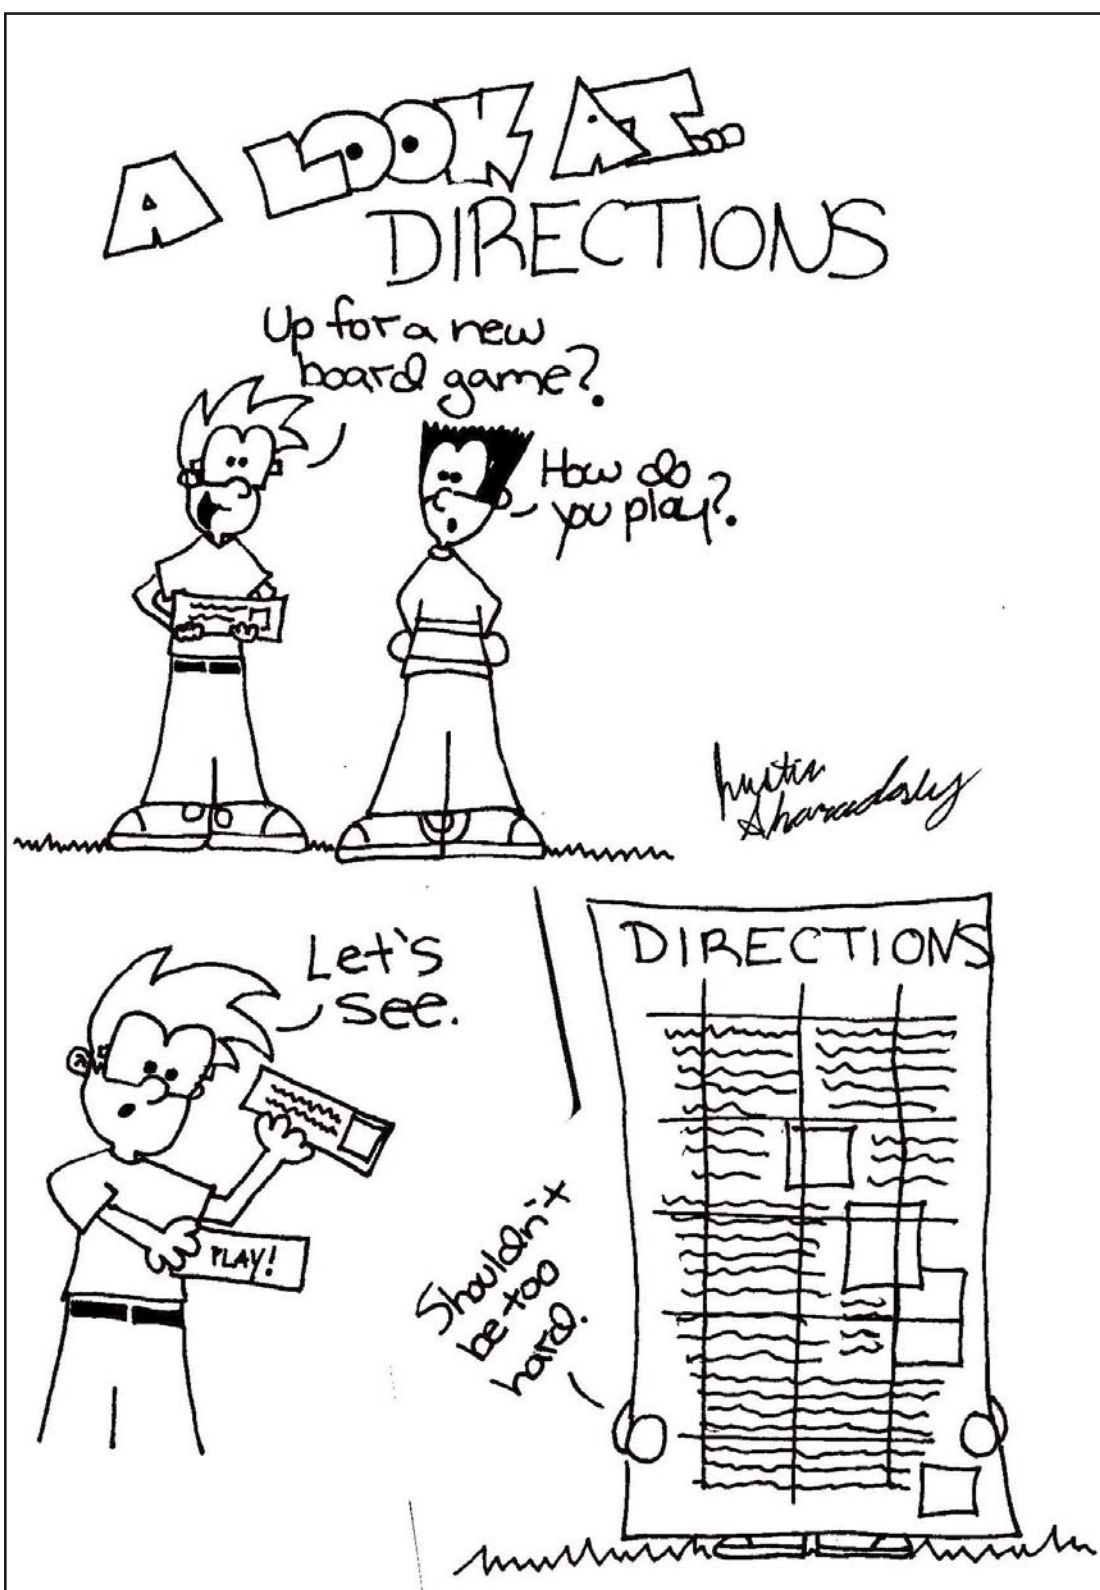 A LOOK AT...
DIRECTIONS
Up for a new
board game?
How do
you play?
Let's
see.
PLAY!
DIRECTIONS
Shouldn't
be too
hard.